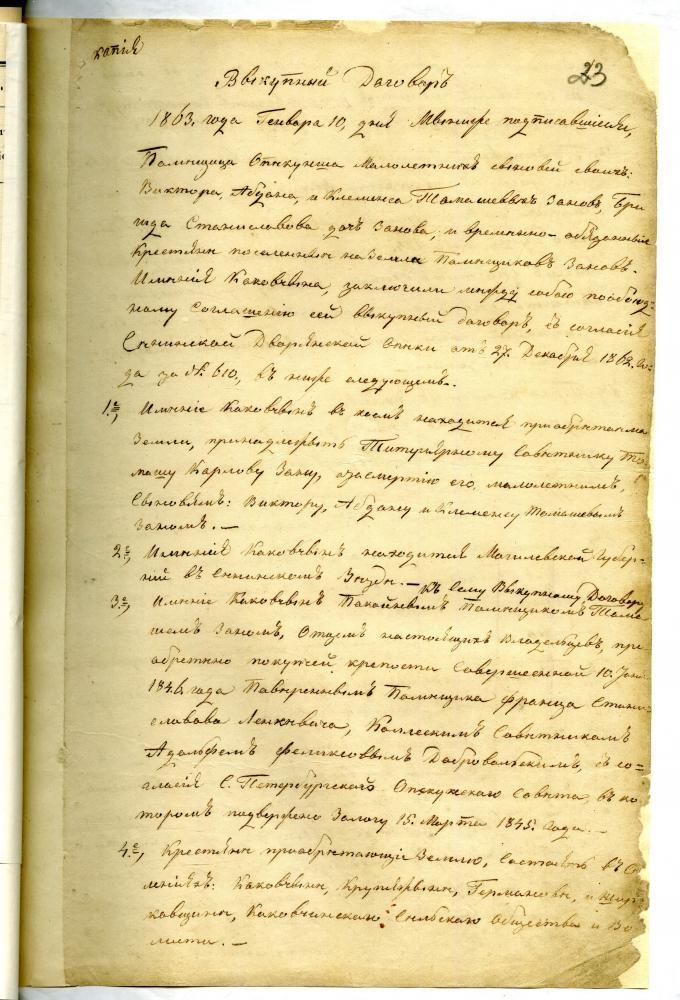 копія
23
Выкупный Договоръ
1863, года Генваря 10, дня Мы ниже подписавшіеся,
Помѣщица Опекунша малолетнихъ сыновей своихъ:
Виктора, Абдана, и Клеменса Томашевыхъ Зановъ, Бри
гида Станиславова дочь Занова, и временно-обязанные
Крестьяне поселенные на Земле Помѣщиковъ Зановъ.
Имѣнія Каковчина, заключили между собою пообоюд-
ному согласшенію сей выкупный договоръ, съ согласія
Сѣннинской Дворянской Опеки отъ 27, Декабря 1862, го-
да за № 610, въ ниже следующемъ.
1.е, Имѣніе Каковчинъ въ коемъ находится пріобретаемая
Земля, принадлежитъ Титулярному Совѣтнику То-
машу Карлову Зану, а засмертію его, малолетнимъ,
Сыновямъ: Виктору, Абдану и Клеменсу Томашевымъ
Заномъ. —
2.е, Имѣнія Каковчинъ находится Могилевской Губер-
ніи въ Сѣннинскомъ Уездѣ. — Къ сему Выкупному Договору
3.е, Имѣніе Каковчинъ Покойнымъ Помѣщикомъ Тома
шемъ Заномъ, Отцемъ настоящихъ Владельцевъ, прі
обретено покупчей крепости Совершенной 10, Іюня
1846, года Повереннымъ Помѣщика Франца Стани-
славова Ленкевича, Коллескимъ Совѣтникомъ
Адольфомъ Феликсовымъ Добровольскимъ, съ со-
гласія С. Петербургскаго Опекунскаго Совѣта, въ ко
торомъ подвержено Залогу 15, Марта 1845, года. —
4.е, Крестьяне пріобретающіе Землю, Состоятъ въ И
мѣніяхъ: Каковчинѣ, Германовѣ, и
ковщинѣ, Каковчинскаго Сельскаго общества и Во
лости. —